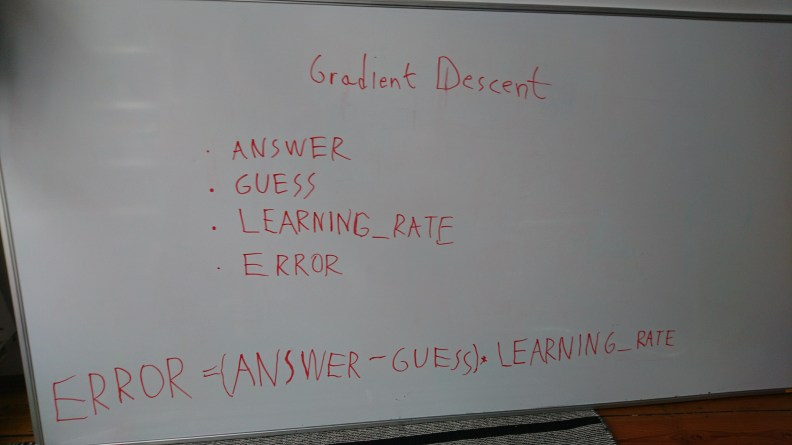 Gradient Descent
· ANSWER
· GUESS
· LEARNING_RATE
· ERROR
ERROR =(ANSWER-GUESS)· LEARNING_RATE